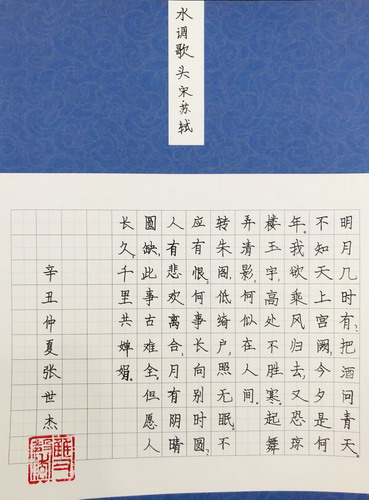 水调歌头宋苏轼
明月几时有?把酒问青天。
不知天上宫阙,今夕是何
年。我欲乘风归去,又恐琼
楼玉宇,高处不胜寒。起舞
弄清影,何似在人间。
转朱阁,低绮户,照无眠。不
应有恨,何事长向别时圆?
人有悲欢离合,月有阴晴
圆缺,此事古难全。但愿人
长久,千里共婵娟。
辛丑仲夏张世杰